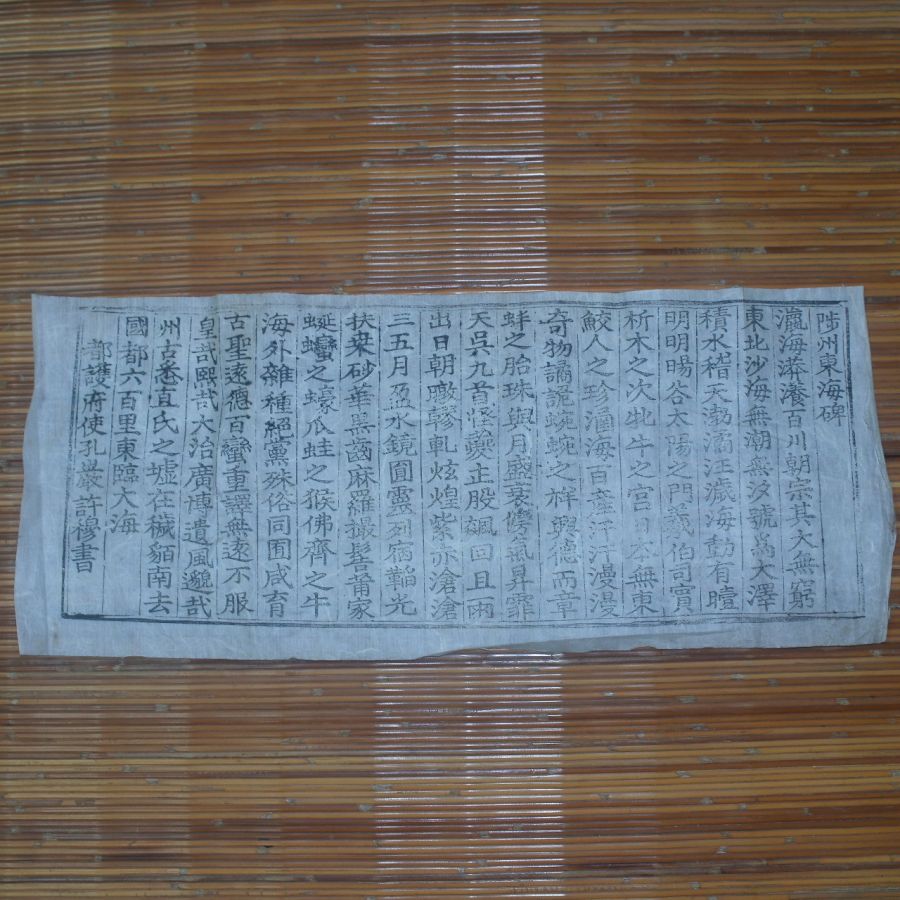 陟州東海碑
瀛海漭瀁百川朝宗其大無窮
東北沙海無潮無汐號爲大澤
積水稽天渤潏汪濊海動有曀
明明暘谷太陽之門羲伯司賓
析木之次牝牛之宮日本無東
鮫人之珍涵海百産汗汗漫漫
奇物譎詭蜿蜿之祥興德而章
蚌之胎珠與月盛衰傍氣昇霏
天吳九首怪夔一股飆回且雨
出日朝暾轇軋炫煌紫赤滄滄
三五月盈水鏡圓靈列宿韜光
扶桒砂華黑齒麻羅撮髻莆家
蜒蠻之蠔爪蛙之猴佛齊之牛
海外雜種絕黨殊俗同囿咸育
古聖遠德百蠻重譯無遠不服
皇哉熙哉大治廣博遺風邈哉
州古悉直氏之墟在穢貊南去
國都六百里東臨大海
都護府使孔巖許穆書